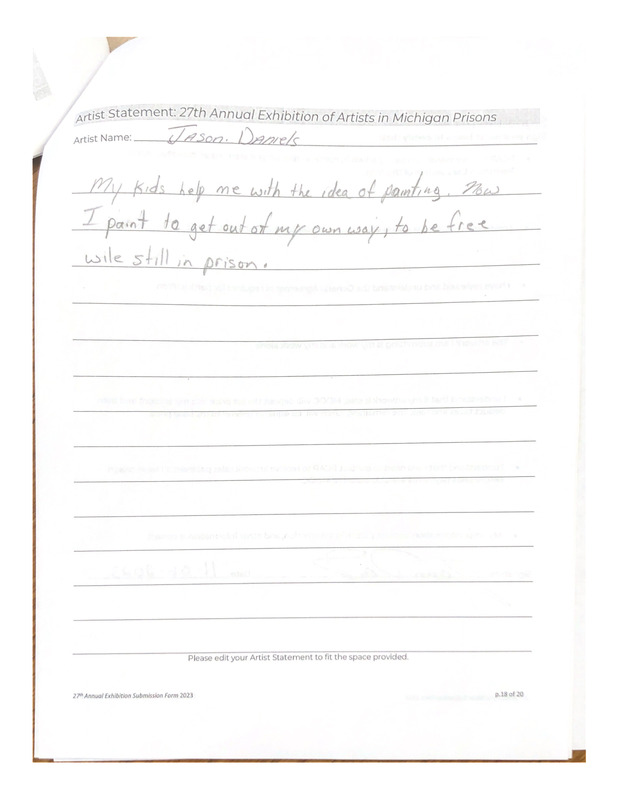 Artist Statement: 27th Annual Exhibition of Artists in Michigan Prisons
Artist Name: Jason. Daniels
My kids help me with the idea of painting. Now
I paint to get out of my own way, to be free
wile still in prison.
Please edit your Artist Statement to fit the space provided.
27th Annual Exhibition Submission Form 2023
p.18 of 20